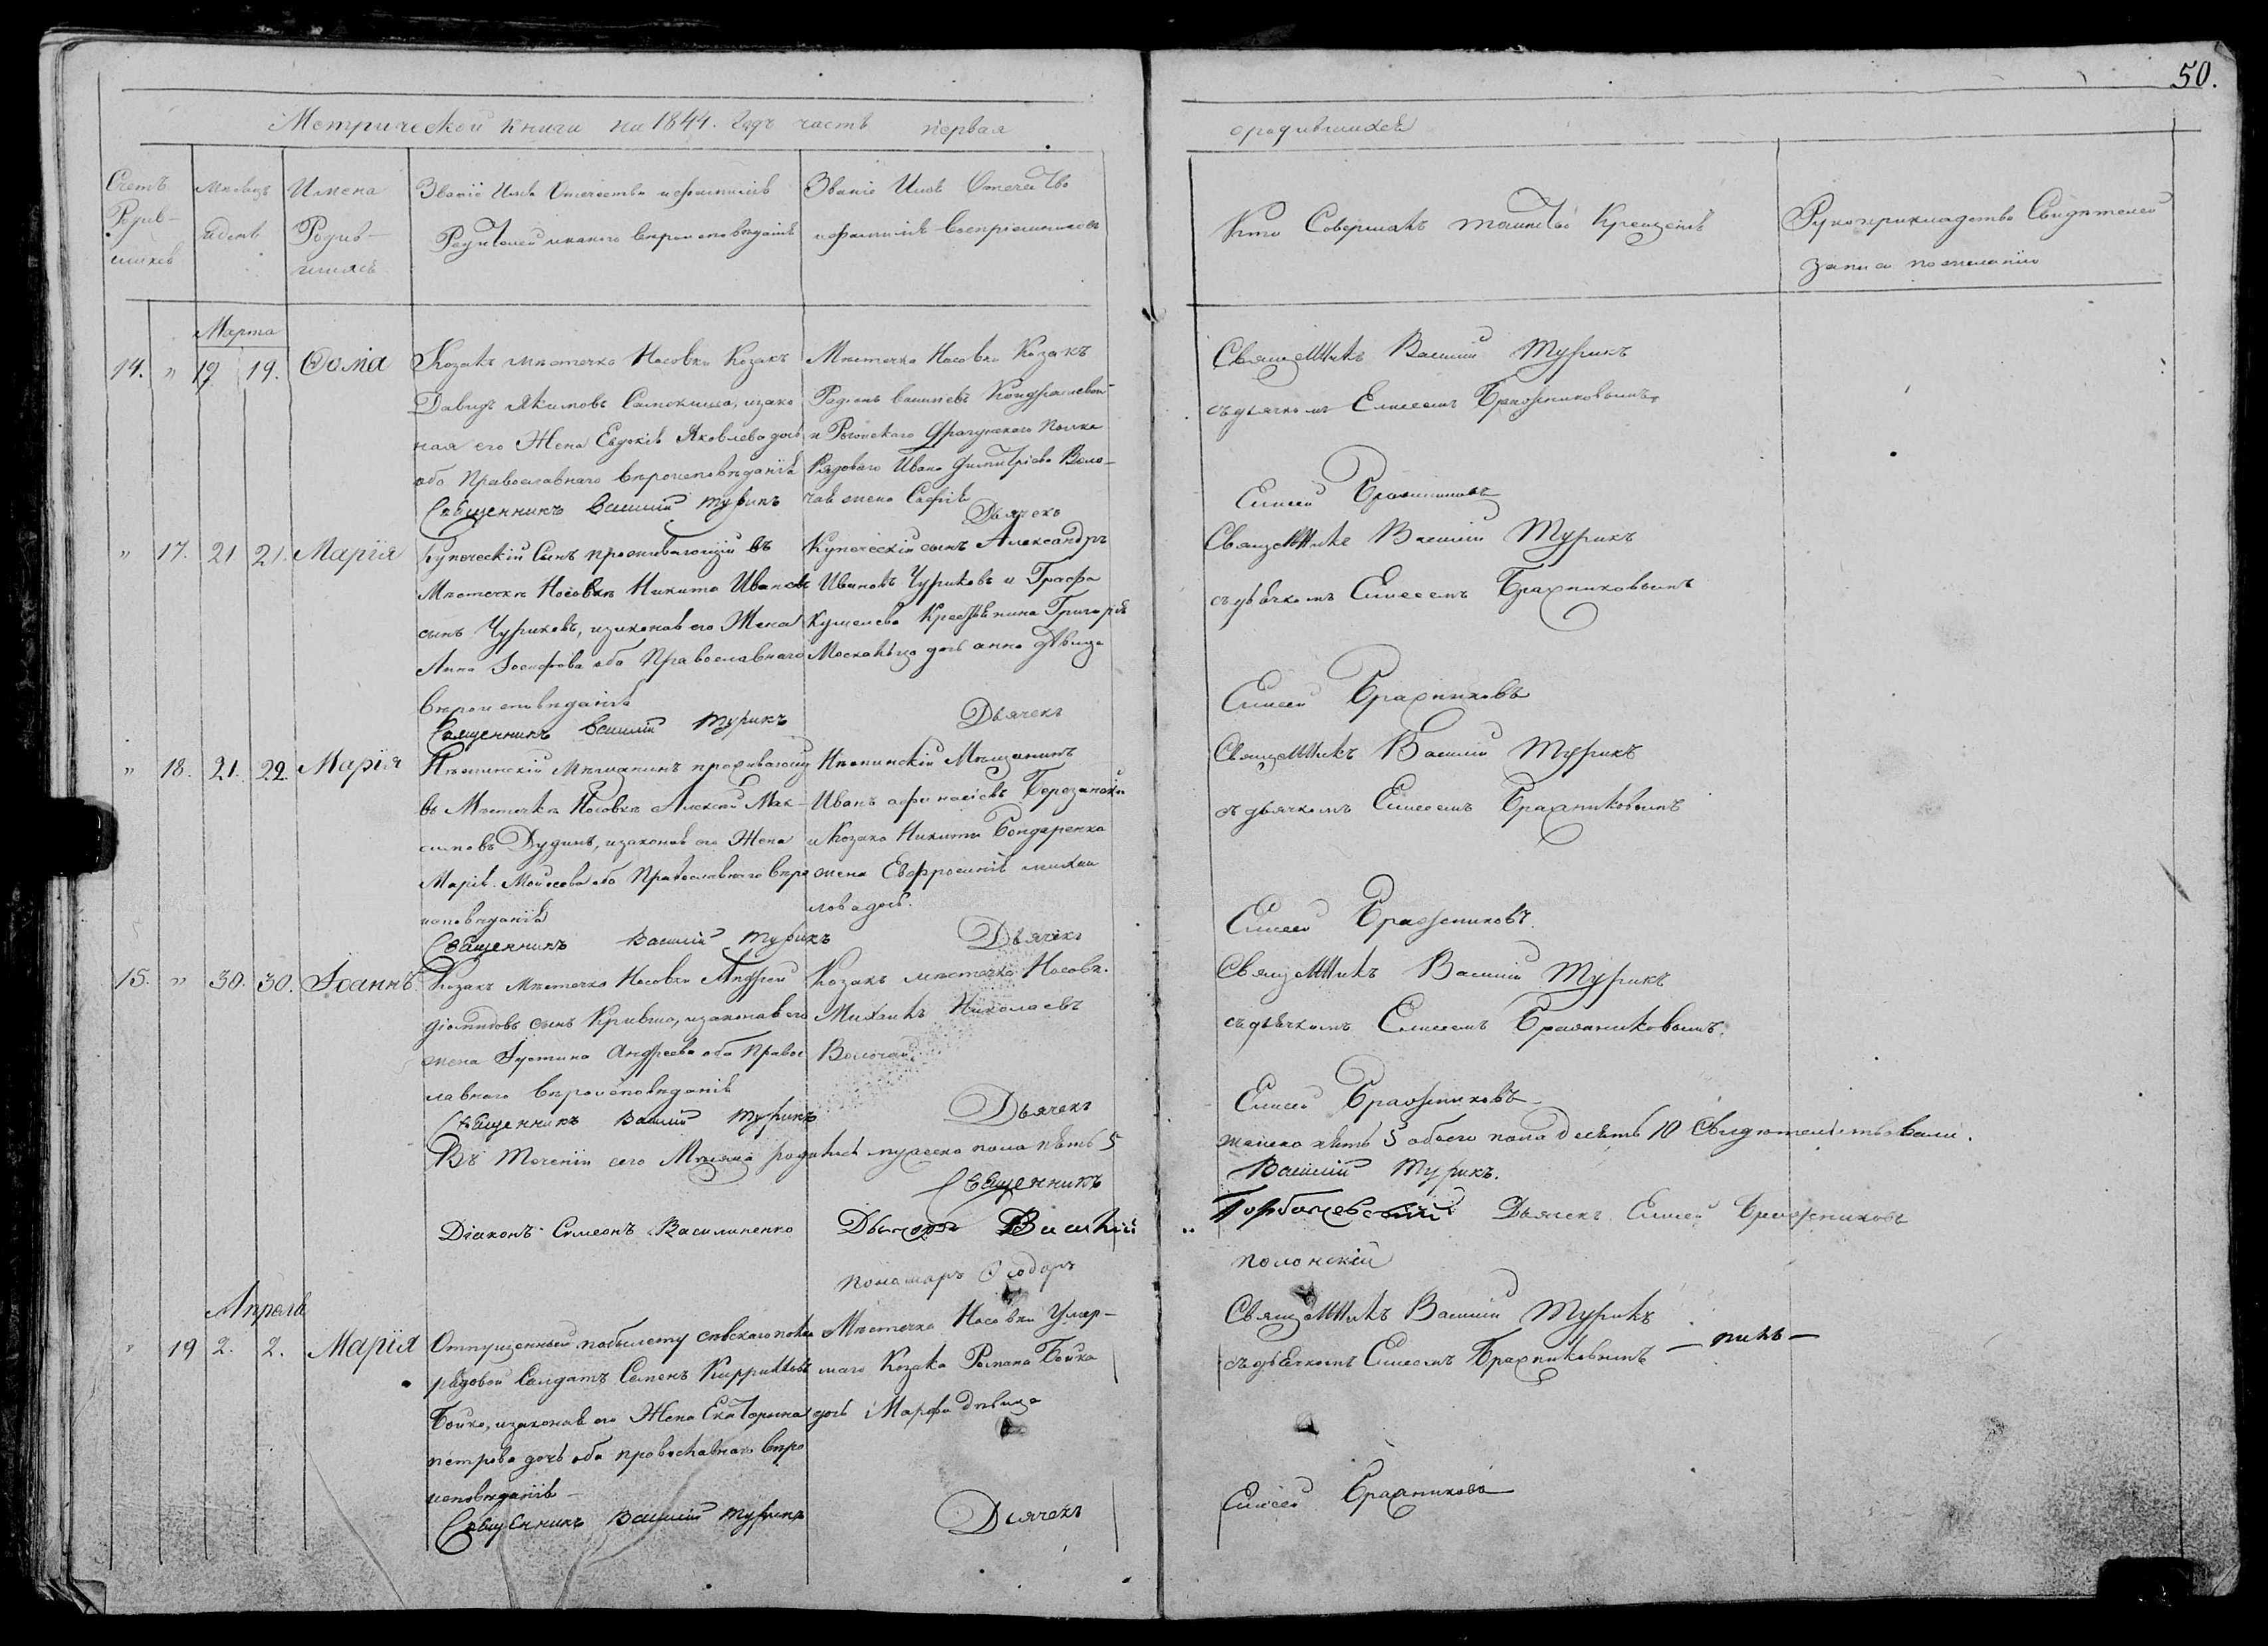 50.
Метрической книги на 1844. Годъ часть первая
ородившихся
Счетъ Родив-шихся
Мѣсяцъ и день
Имена Родив-шихся
Званіе Имя Отечество и фамилія
Родителей и какого вѣроисповѣданія
Званіе Имя Отечество
и фамилія Воспріемниковъ
Кто Совершалъ таинство Крещенія
Рукоприкладство Свидѣтелей
записи по желанію
Марта
14. " 19 19. Ѳома
Козакъ мѣстечка Носовки Козакъ
Давидъ Якимовъ, изако
ная его Жена Евдокія Яковлева дочь
оба Православнаго вѣроисповѣданія
Священникъ Василій Турикъ
Мѣстечка Носовки Козакъ
Родіонъ
и Драгунскаго Полка
Рядового Ивана Димитріева Воло-
чая жена Софія
Дьячекъ
Священникъ Василій Турикъ
съ дьячкомъ Елисеемъ Бражниковымъ
Елисей Бражниковъ
" 17. 21 21. Марія
Купеческій Сынъ проживающій въ
Мѣстечкѣ Носовкѣ Никита Ивановъ
сынъ Чуриковъ, изаконая его Жена
Анна Іосифова оба Православнаго
вѣроисповѣданія
Священникъ Василій Турикъ
Купеческій сынъ Александръ
Ивановъ Чуриковъ и Графа
Кушелева Крестьянина Григорія
дочь анна дѣвица
Дьячекъ
Священникъ Василій Турикъ
съ дьячкомъ Елисеемъ Бражниковымъ
Елисей Бражниковъ
" 18. 21. 22. Марія
Нѣжинскій Мѣщанинъ проживающ
въ Мѣстечкѣ Носовкѣ Алексѣй Мак-
симовъ Дудинъ, изаконая его Жена
Марія Моисеева оба Православнаго вѣро
исповѣданія
Священникъ Василій Турикъ
Нѣжинскій Мѣщанинъ
Иванъ афанасіевъ
и Козака Никиты Бондаренка
жена Евфросинія михаи
лова дочь.
Дьячекъ
Священникъ Василій Турикъ
съ дьячкомъ Елисеемъ Бражниковымъ
Елисей Бражниковъ
15. " 30. 30. Іоаннъ
Козакъ Мѣстечка Носовки Андрей
діомидовъ сынъ, изаконая его
жена Іустина Андреева оба Правос
лавнаго вѣроисповѣданія
Священникъ Василій Турикъ
Козакъ мѣстечка Носовк.
Михаилъ Николаевъ
Волочай
Дьячекъ
Священникъ Василій Турикъ
съ дьячкомъ Елисеемъ Бражниковымъ.
Елисей Бражниковъ
Въ теченіи сего Мѣсяца родилось мужеска пола пять 5
женска пять 5 обоего пола десять 10 Свидѣтельствовали.
Священникъ Василій Турикъ.
Діаконъ Симеонъ Василиненко
Горбачевскій Дьячекъ Елисей Бражниковъ
пономарь Ѳеодоръ полонскій
Апрель
" 19 2. 2. Марія
Отпущенный по билету полка
рядовой Солдатъ Семенъ
Бойко, изаконая его Жена Екатерина
петрова дочь оба православнаго вѣро
исповѣданія
Священникъ Василій Турикъ
Мѣстечка Носовки Умер-
шаго Козака Романа Бойка
дочь Марфа дѣвица
Дьячекъ
Священникъ Василій Турикъ
съ дьячкомъ Елисеемъ Бражниковымъ
Елисей Бражниковъ